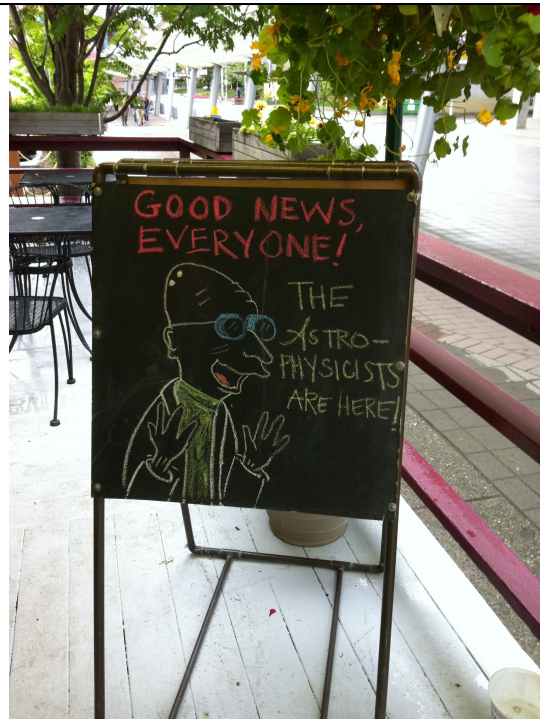 GOOD NEWS,
EVERYONE!
THE
ASTRO-
PHYSICISTS
ARE HERE!